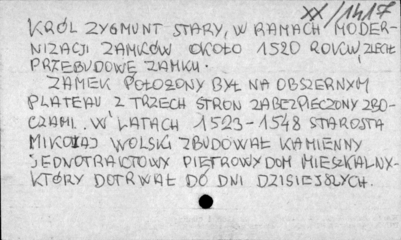 XX/1417
KRÓL ZYGMUNT STARY, W RAMACH MODER-
NIZACJI ZAMKÓW OKOŁO 1520 ROKU, ZLECIŁ
PRZEBUDOWĘ ZAMKU.
ZAMEK POŁOŻONY BYŁ NA OBSZERNYM
PLATEAU Z TRZECH STRON ZABEZPIECZONY ZBO-
CZAMI. W LATACH 1523-1548 STAROSTA
MIKOŁAJ WOLSKI ZBUDOWAŁ KAMIENNY
JEDNOTRAKTOWY PIĘTROWY DOM MIESZKALNY-
KTÓRY DOTRWAŁ DO DNI DZISIEJSZYCH.